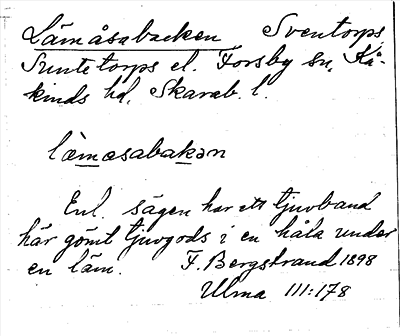 Lämåsabacken Sventorps
Suntetorps el. Forsby sn, Kå-
kinds hd, Skarab. l.
lämosabakən
Enl. sägen har ett tjuvband
här gömt tjuvgods i en håla under
en läm. F. Bergstrand 1898
Ulma 111:178